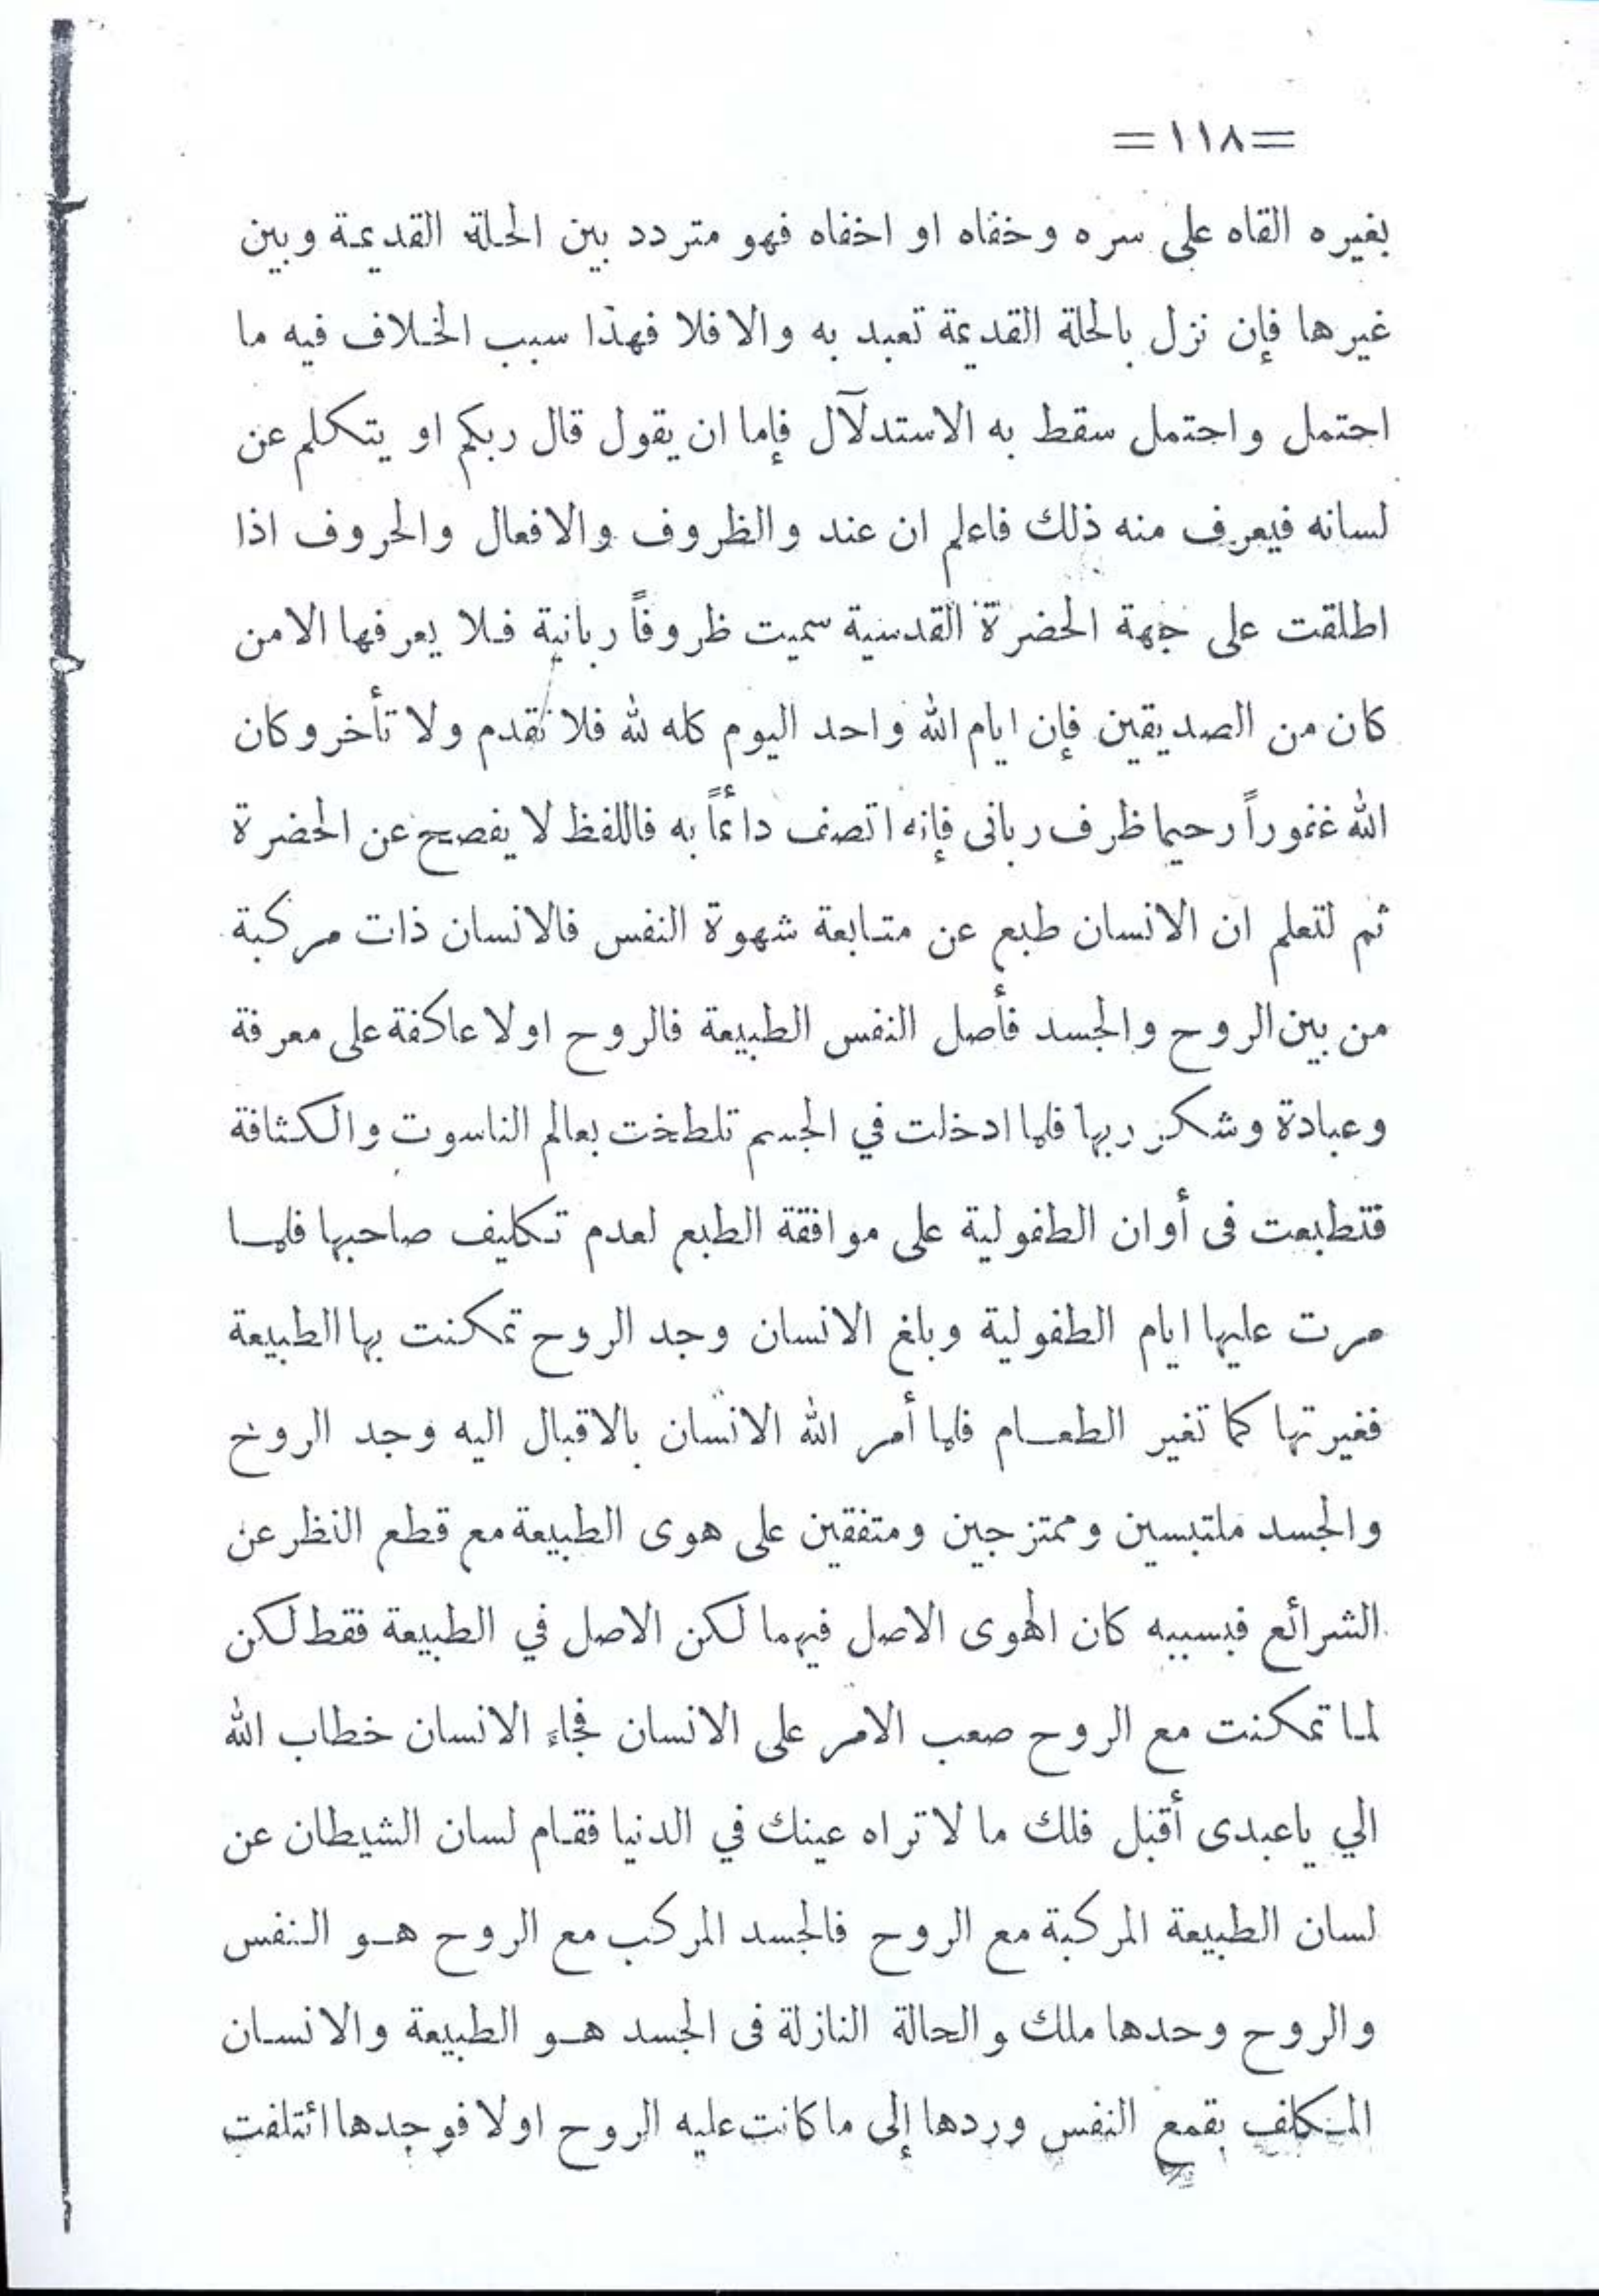 =١١٨=
بغيره القاه على سره وخفاه او اخفاه فهو متردد بين الحلة القديمة وبين
غيرها فإن نزل بالحلة القديمة تعبد به والا فلا فهذا سبب الخلاف فيه ما
احتمل واحتمل سقط به الاستدلآل فإما ان يقول قال ربكم او يتكلم عن
لسانه فيعرف منه ذلك فاعلم ان عند والظروف والافعال والحروف اذا
اطلقت على جهة الحضرة القدسية سميت ظروفاً ربانية فلا يعرفها الامن
كان من الصديقين فإن ايام الله واحد اليوم كله لله فلا تقدم ولا تأخر وكان
الله غفوراً رحيما ظرف ربانى فإنه اتصف دائماً به فاللفظ لا يفصح عن الحضرة
ثم لتعلم ان الانسان طبع عن متابعة شهوة النفس فالانسان ذات مركبة
من بين الروح والجسد فأصل النفس الطبيعة فالروح اولا عاكفة على معرفة
وعبادة وشكر ربها فلما ادخلت في الجسم تلطخت بعالم الناسوت والكثافة
فتطبعت فى أوان الطفولية على موافقة الطبع لعدم تكليف صاحبها فلما
مرت عليها ايام الطفولية وبلغ الانسان وجد الروح تمكنت بها الطبيعة
فغيرتها كما تغير الطعام فلما أمر الله الانسان بالاقبال اليه وجد الروح
والجسد ملتبسين وممتزجين ومتفقين على هوى الطبيعة مع قطع النظر عن
الشرائع فبسببه كان الهوى الاصل فيهما لكن الاصل في الطبيعة فقط لكن
لما تمكنت مع الروح صعب الامر على الانسان فجاء الانسان خطاب الله
الي ياعبدى أقبل فلك ما لا تراه عينك في الدنيا فقام لسان الشيطان عن
لسان الطبيعة المركبة مع الروح فالجسد المركب مع الروح هو النفس
والروح وحدها ملك والحالة النازلة فى الجسد هو الطبيعة والانسان
المكلف بقمع النفس وردها إلى ما كانت عليه الروح اولا فوجدها ائتلفت